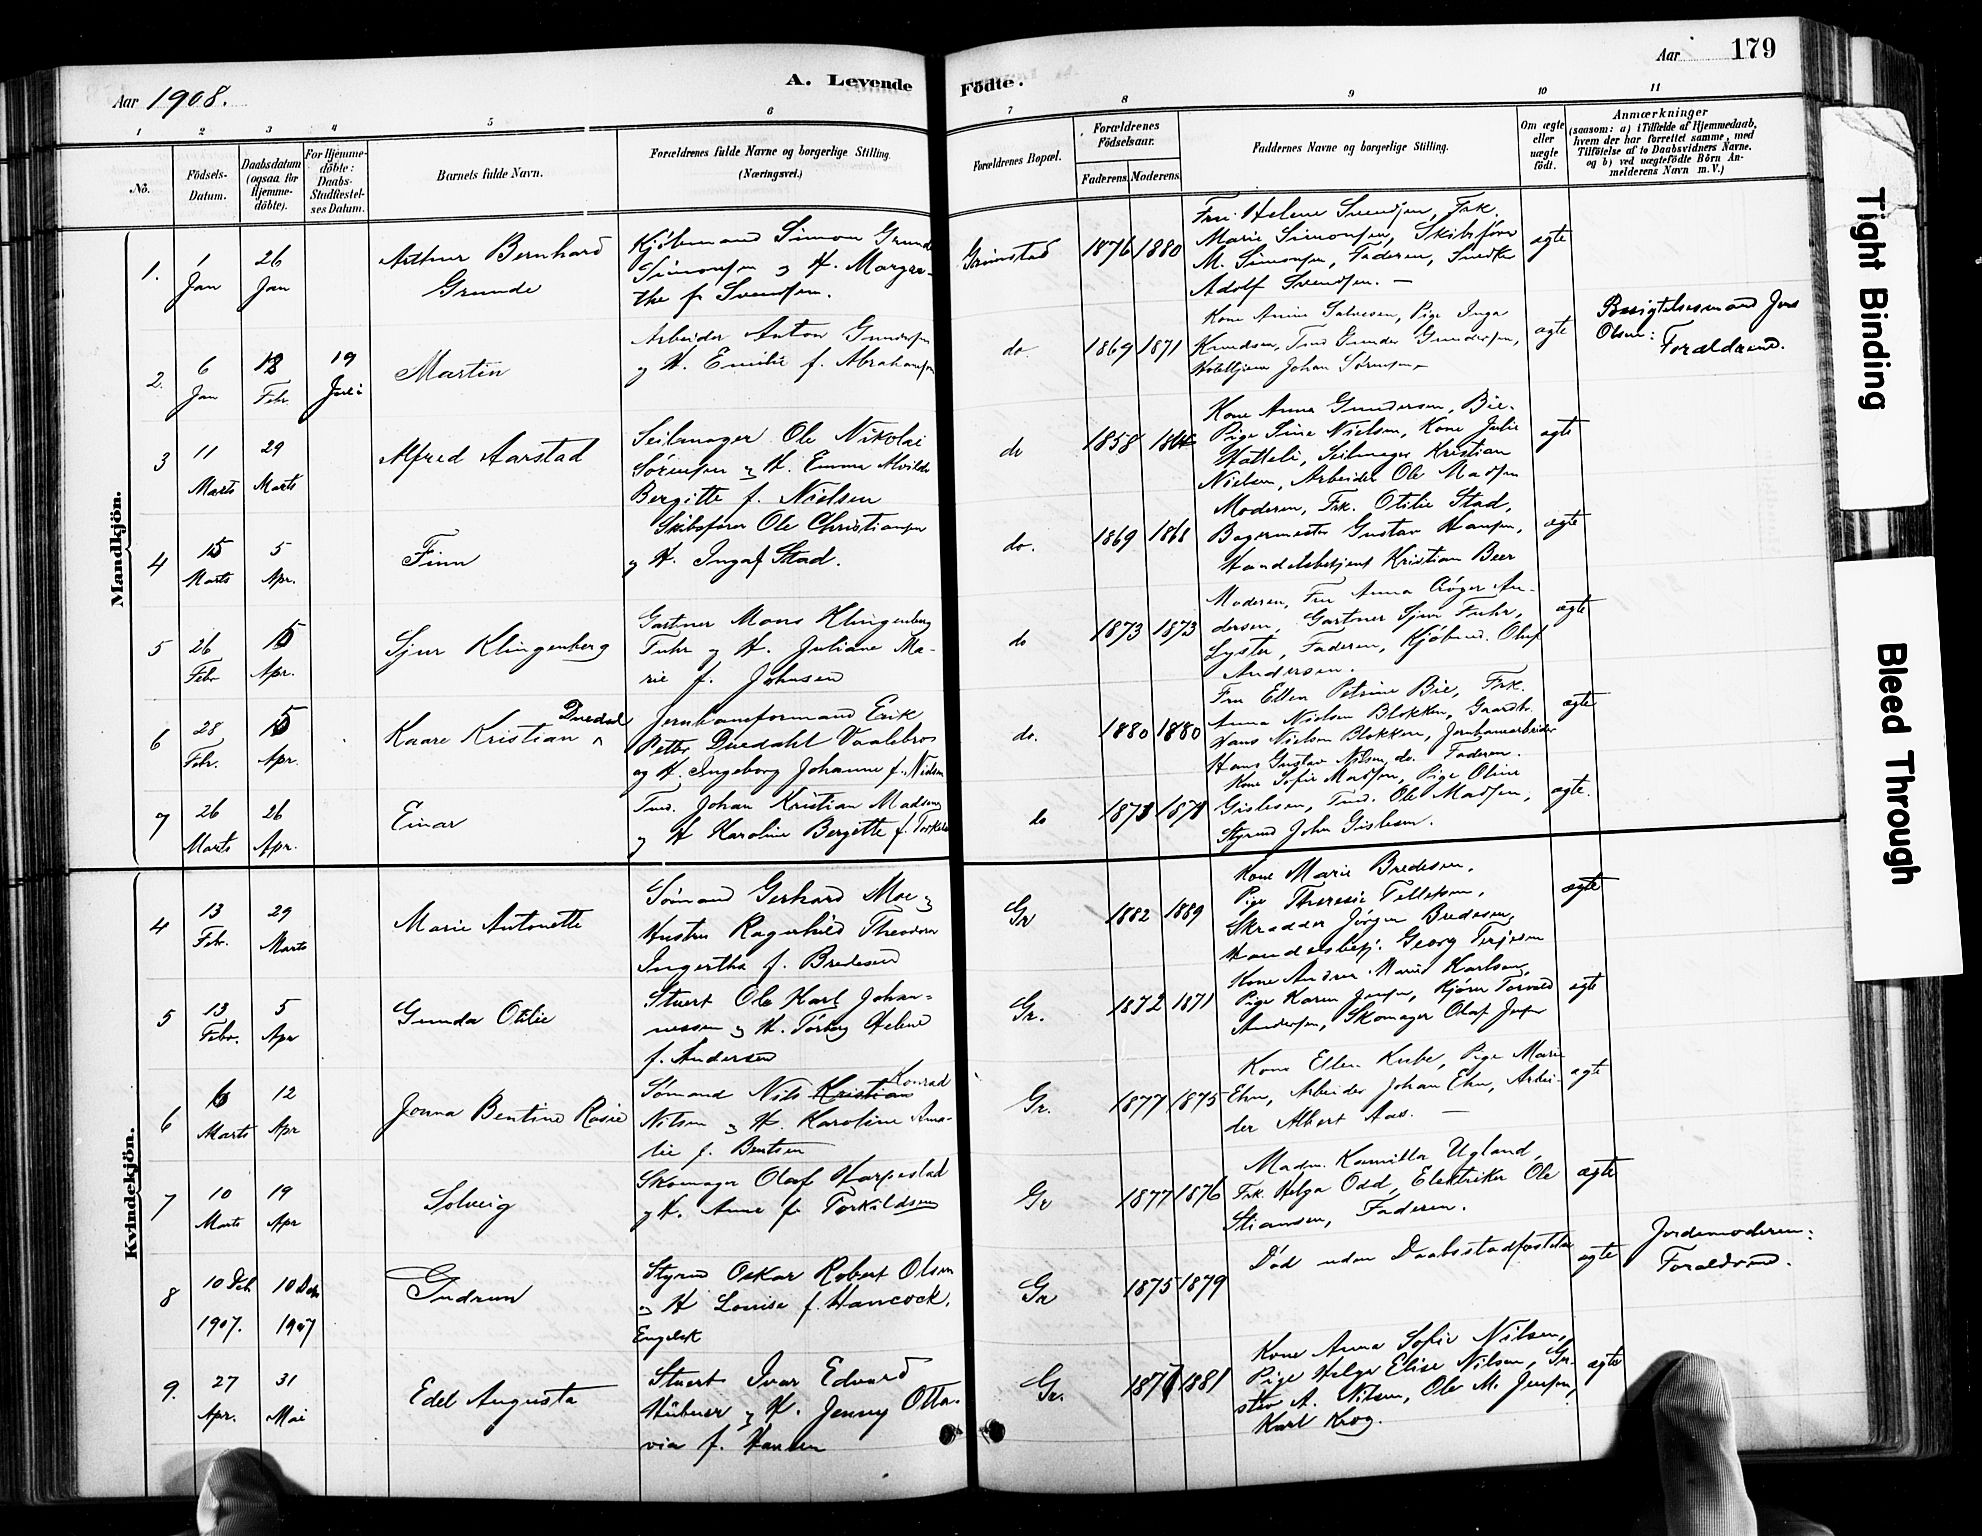 Aar 1908.
A. Levende
Födte.
Aar 179
1 2 3 4 5 6
7 8 9 10 11
No.
Födsels-Datum.
Daabsdatum (ogsaa for Hjemmedöbte).
For Hjemmedöbte: Daabs-Stadfæstelses Datum.
Barnets fulde Navn.
Forældrenes fulde Navne og borgerlige Stilling.
(Næringsvei.)
Forældrenes Bopæl.
Forældrenes Födselsaar.
Faderens. Moderens.
Faddernes Navne og borgerlige Stilling.
Om ægte eller uægte födt.
Anmærkninger
(saasom: a) i Tilfælde af Hjemmedaab,
hvem der har forrettet samme, med
Tilföielse af to Daabsvidners Navne.
og b) ved uægtefödte Börn An-
melderens Navn m.V.)
Mandkjön.
1. 1 Jan 26 Jan
Arthur Bernhard
Grunde
Kjöbmand Simon Grunde
Simonsen og H. Margre-
the f. Svendsen.
Grimstad 1876 1880
Fru Helene Svendsen, Frk.
Marie Simonsen, Skibsförer
M. Simonsen, Faderen, Snedker
Adolf Svendsen. —
ægte
2. 6 Jan 12 Febr. 19 Juli
Martin
Arbeider Anton Gundersen
og H. Emilie f. Abrahamsen
do. 1869 1871
Kone Annie Salvesen, Pige Inga
Knudsen, Tmd Gunder Gundersen,
Johan Sörensen
ægte
Besigtelsesmand Jens
Olsen: Forældrene.
3 11 Marts 29 Marts
Alfred Aarstad
Seilmager Ole Nikolai
Sörensen og H. Emma Alvilde
Bergitte f. Nielsen
do 1858
Kone Anna Gundersen, Bie.
Pige Sina Nielsen, Kone Julie
Hatteli, Seilmager Kristian
Nielsen, Arbeider Ole Madsen
ægte
4 15 Marts 5 Apr.
Finn
Skibsförer Ole Christiansen
og H. Inga f. Stad.
do. 1869 1868
Moderen, Frk. Otilie Stad,
Bagermester Gustav Hansen,
Handelsbetjent Kristian Beer
ægte
5 26 Febr 5 Apr.
Sjur Klingenberg
Gartner Mons Klingenberg
Fuhr og H. Juliane Ma-
rie f. Johnsen
do 1873 1873
Moderen, Fru Anna Cröger An-
dersen, Gartner Sjur Fuhr,
Lyster, Faderen, Kjöbmd. Oluf
Andersen.
ægte
6 28 Febr. 5 Apr.
Kaare Kristian Duedal
Jernbaneformand Erik
Petter Duedahl Vaalebro
og H. Ingeborg Johanne f. Nielsen
do. 1880 1880
Fru Ellen Petrine Bie, Frk.
Anna Nielsen Blokken, Gaardbr.
Hans Nielsen Blokken, Jernbanearbeider
Hans Gustav Nilsen do. Faderen.
ægte
7 26 Marts 26 Apr.
Einar
Tmd. Johan Kristian Madsen
og H Karoline Bergitte f. Torkels
do 1873 1878
Kone Sofie Madsen, Pige Oline
Gislesen, Tmd. Ole Madsen,
Styrmd John Gislesen.
ægte.
Kvindekjön.
4 13 Febr. 29 Marts
Marie Antonette
Sömand Gerhard Moe og
Hustru Ragnhild Theodora
Ingertha f. Bredesen
Gr 1882 1889
Kone Marie Bredesen,
Pige Theresie Tellefsen,
Skrædder Jörgen Bredesen,
Handelsbetj. Georg Terjesen
ægte
5 13 Febr. 5 Apr
Gunda Otilie
Stuert Ole Karl Johan-
nessen og H. Törborg Helene
f. Andersen
Gr. 1872 1871
Kone Andrea Marie Karlsen,
Pige Karen Jensen, Kjörer Torvald
Andersen, Skomager Olaf Jensen
ægte
6 6 Marts 12 Apr
Jonna Bentine Rosie
Sömand Nils Kristian Konrad
Nilsen og H. Karoline Ama-
lie f. Bentsen
Gr. 1877 1875
Kone Ellen Kube, Pige Marie
Ehn, Arbeider Johan Ehn, Arbei-
der Albert Aas. —
ægte
7 10 Marts 19 Apr
Solveig
Skomager Olaf Harpestad
og H. Anne f. Torkildsen
Gr 1877 1876
Madm. Kamilla Ugland,
Frk. Helga Odd, Elektriker Ole
Stiansen, Faderen.
ægte
8 10 Dcb 1907. 10 Dcb 1907
Gudrun
Styrmd Oskar Robert Olsen
og H Louise f. Hancock,
Engelsk
Gr 1875 1879
Död uden Daabsstadfæstelse
ægte
Jordemoderen:
Forældrene.
9. 27 Apr. 31 Mai
Edel Augusta
Stuert Ivar Edvard
Hübner og H. Jenny Otta-
via f. Hansen
Gr. 1871 1881
Kone Anna Sofie Nilsen,
Pige Helga Elise Nilsen, Gu-
stav A. Nilsen, Ole M. Jensen,
Karl Krog.
ægte
Tight Binding
Bleed Through